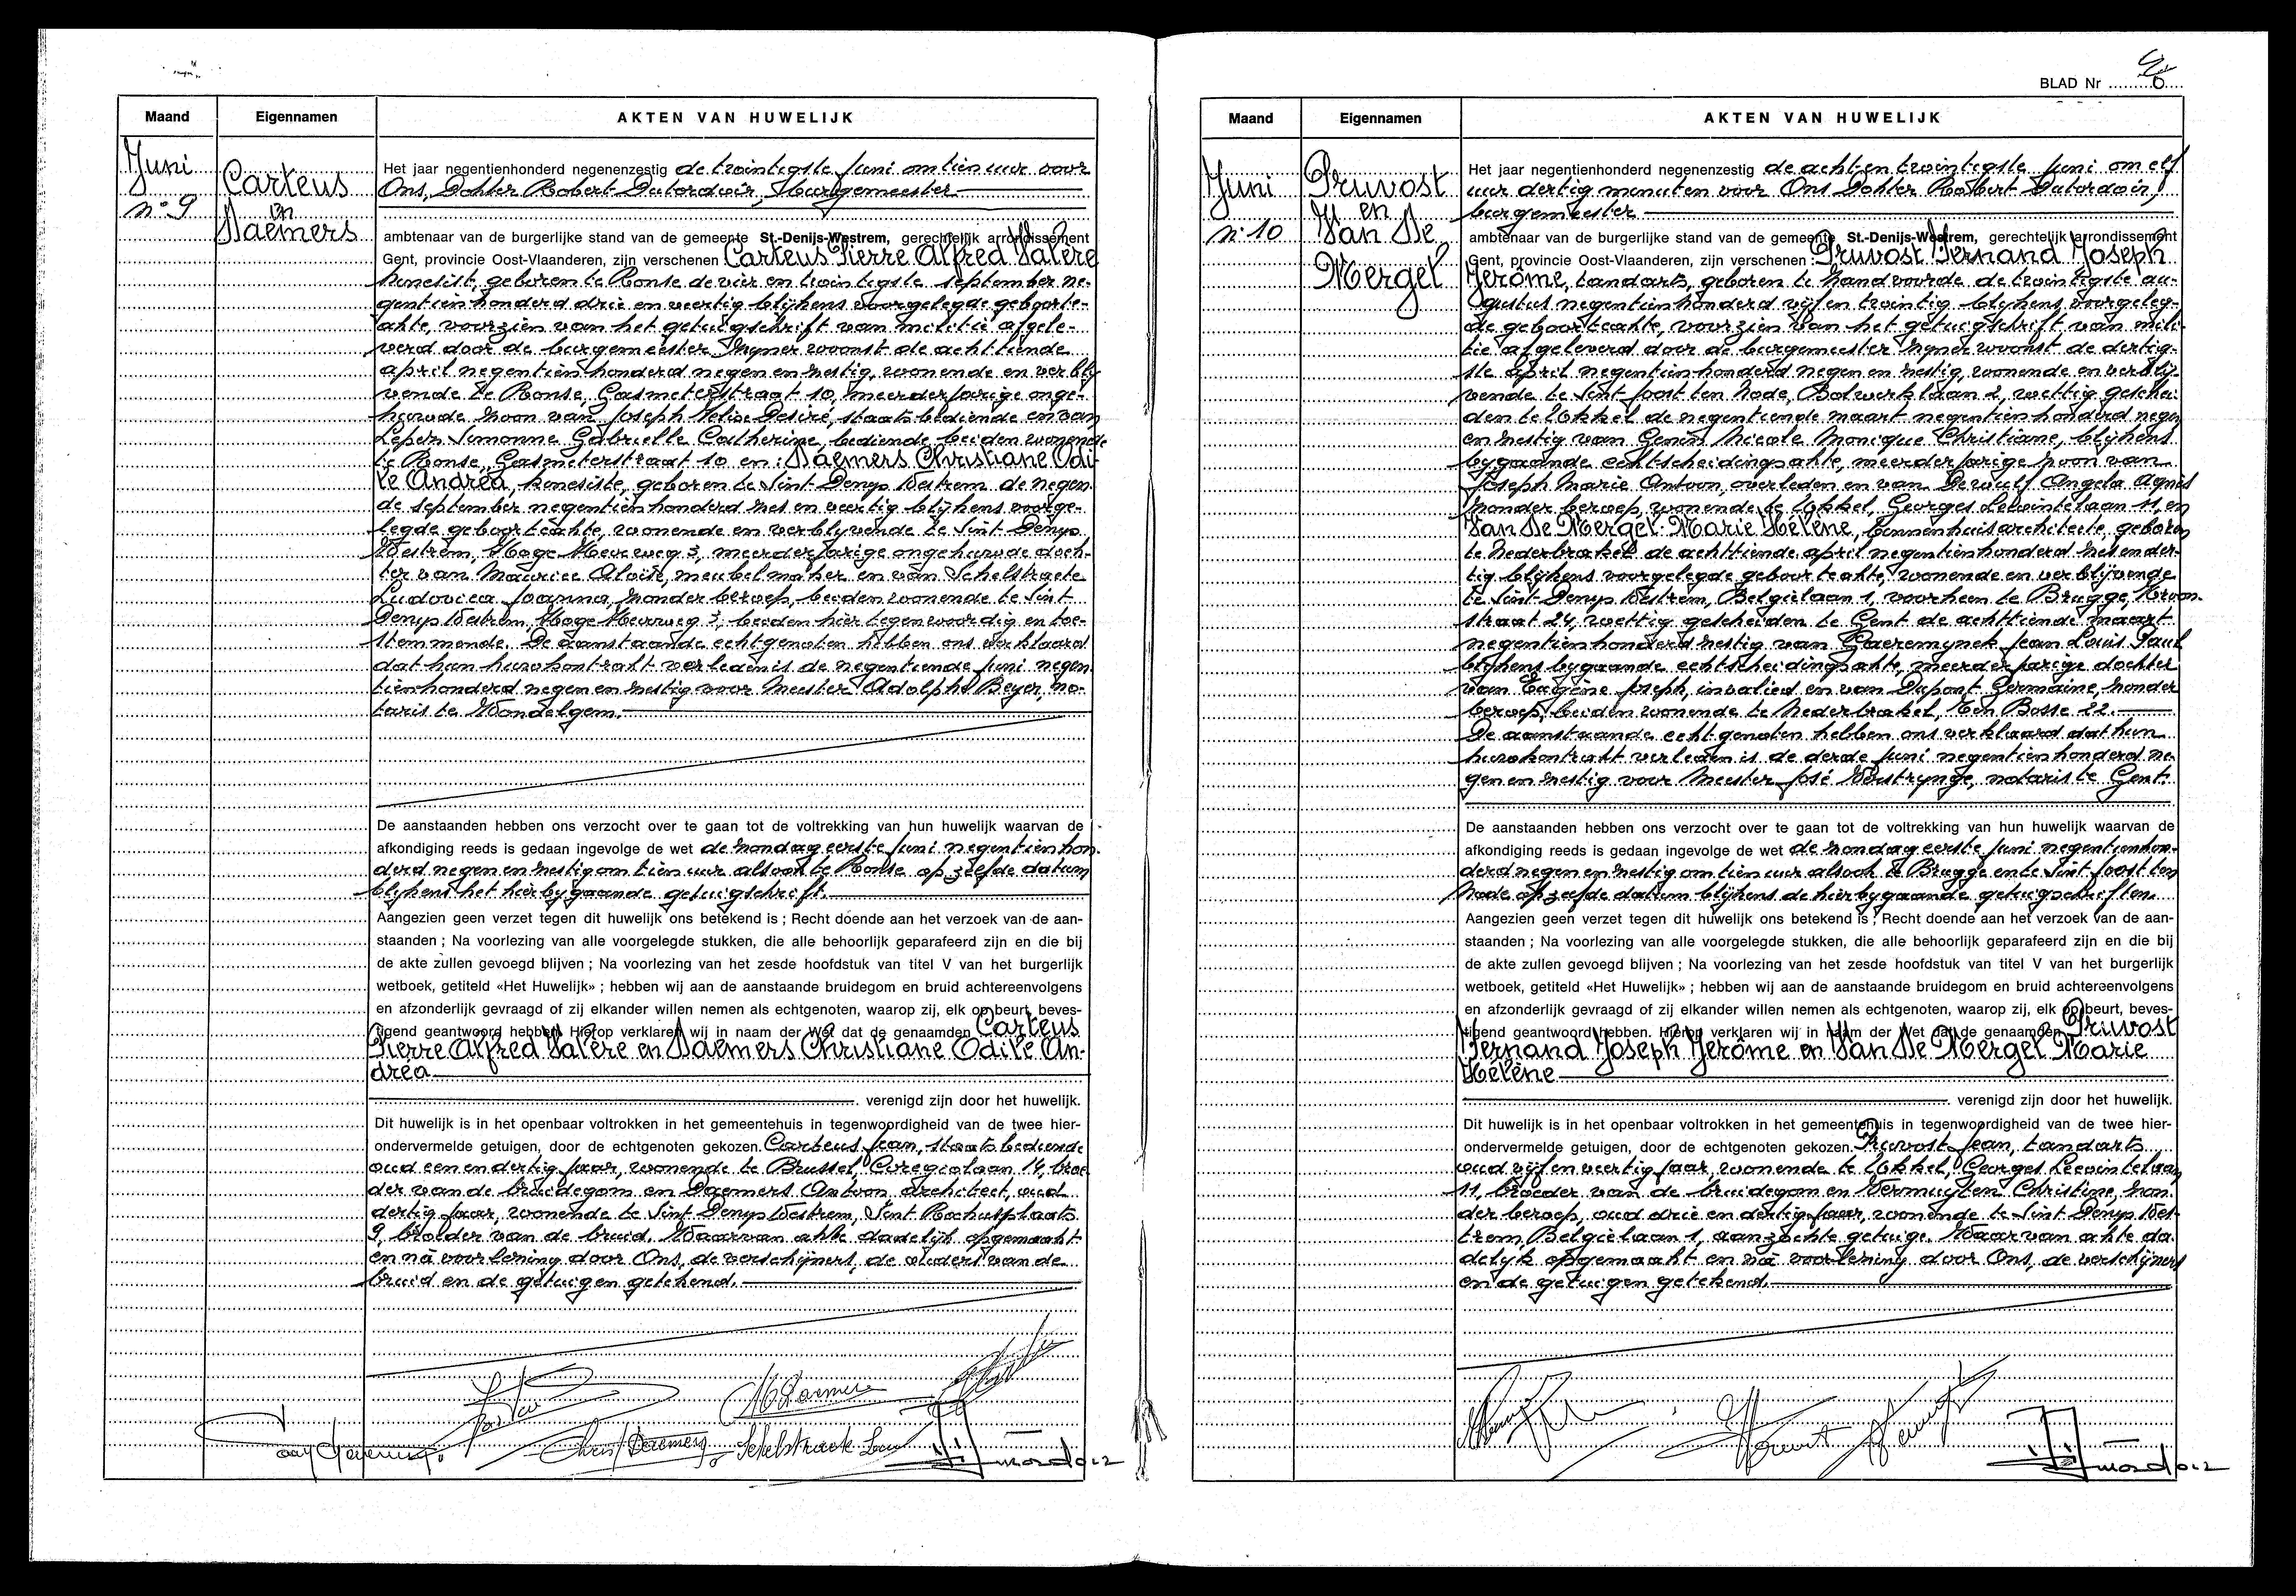 Maand
Eigennamen
AKTEN VAN HUWELIJK
Juni
n° 9
Carteus
en
Daemers
Het jaar negentienhonderd negenenzestig de twintigste juni om tien uur voor
Ons, Dokter Robert Dutordoir, Burgemeester
ambtenaar van de burgerlijke stand van de gemeente St.-Denijs-Westrem, gerechtelijk arrondissement
Gent, provincie Oost-Vlaanderen, zijn verschenen Carteus Pierre Alfred Valère
kinesist, geboren te Ronse de vier en twintigste september ne-
gentienhonderd drie en veertig blijkens voorgelegde geboorte-
akte, voorzien van het getuigschrift van militie afgele-
verd door de burgemeester zijner woonst de achttiende
april negentienhonderd negen en zestig, wonende en verblij-
vende te Ronse, Gasmeterstraat 10, meerderjarige onge-
huwde zoon van Joseph Felix Desiré, staatsbediende en van
Lepers Simonne Gabrielle Catherine, bediende beiden wonende
te Ronse, Gasmeterstraat 10 en: Daemers Christiane Odi-
le Andrea, kinesiste, geboren te Sint Denys Westrem de negen
de september negentienhonderd zes en veertig blijkens voorge-
legde geboorteakte, wonende en verblyvende te Sint Denys
Westrem, Hoge Heirweg 3, meerderjarige ongehuwde doch-
ter van Maurice Aloïs, meubelmaker en van Schelstraete
Ludovica Joanna, zonder beroep, beiden wonende te Sint
Denys Westrem, Hoge Heirweg 3, beiden hier tegenwoordig en toe-
stemmende. De aanstaande echtgenoten hebben ons verklaard
dat hun huwkontrakt verleden is de negentiende juni negen
tienhonderd negen en zestig voor Meester Adolphe Beyer, no-
taris te Wondelgem.
De aanstaanden hebben ons verzocht over te gaan tot de voltrekking van hun huwelijk waarvan de
afkondiging reeds is gedaan ingevolge de wet de zondag eerste juni negentienhon-
derd negen en zestig om tien uur alsook te Ronse op zelfde datum
blijkens het hierbygaande getuigschrift.
Aangezien geen verzet tegen dit huwelijk ons betekend is ; Recht doende aan het verzoek van de aan-
staanden ; Na voorlezing van alle voorgelegde stukken, die alle behoorlijk geparafeerd zijn en die bij
de akte zullen gevoegd blijven ; Na voorlezing van het zesde hoofdstuk van titel V van het burgerlijk
wetboek, getiteld «Het Huwelijk» ; hebben wij aan de aanstaande bruidegom en bruid achtereenvolgens
en afzonderlijk gevraagd of zij elkander willen nemen als echtgenoten, waarop zij, elk op beurt, beves-
tigend geantwoord hebben. Hierop verklaren wij in naam der Wet dat de genaamden Carteus
Pierre Alfred Valère en Daemers Christiane Odile An-
drea
verenigd zijn door het huwelijk.
Dit huwelijk is in het openbaar voltrokken in het gemeentehuis in tegenwoordigheid van de twee hier-
ondervermelde getuigen, door de echtgenoten gekozen. Carteus Jean, staatsbediende
oud een en dertig jaar, wonende te Brussel, Coregiolaan 14, broe-
der van de bruidegom en Daemers Antoon architect, oud
dertig jaar, wonende te Sint Denys Westrem, Sint Rochusplaats
9, broeder van de bruid. Waarvan akte dadelijk opgemaakt
en nà voorlezing door Ons, de verschijners, de ouders van de
bruid en de getuigen getekend.
Christ Daemers
Schelstraete
BLAD Nr 6
Maand
Eigennamen
AKTEN VAN HUWELIJK
Juni
n° 10
Pruvost
en
Van De
Mergel
Het jaar negentienhonderd negenenzestig de acht en twintigste juni om elf
uur dertig minuten voor Ons Dokter Robert Dutordoir,
burgemeester
ambtenaar van de burgerlijke stand van de gemeente St.-Denijs-Westrem, gerechtelijk arrondissement
Gent, provincie Oost-Vlaanderen, zijn verschenen : Pruvost Fernand Joseph
Jerôme, tandarts, geboren te Zandvoorde de twintigste au-
gustus negentienhonderd vijf en twintig blijkens voorgeleg-
de geboorteakte, voorzien van het getuigschrift van mili-
tie afgeleverd door de burgemeester zijner woonst de dertig-
ste april negentienhonderd negen en zestig, wonende en verblij-
vende te Sint Joost ten Node, Bolwerklaan 2, wettig geschei-
den te Ukkel de negentiende maart negentienhonderd negen
en zestig van Genin Nicole Monique Christiane, blijkens
bygaande echtscheidingsakte, meerderjarige zoon van
Joseph Marie Antoon, overleden en van Dewulf Angela Agnes
zonder beroep, wonende te Ukkel, Georges Lecointelaan 11, en
Van De Mergel Marie Hélène, binnenhuisarchitecte, geboren
te Nederbrakel de achttiende april negentienhonderd zes en der-
tig blijkens voorgelegde geboorteakte, wonende en verblijvende
te Sint Denys Westrem, Belgiëlaan 1, voorheen te Brugge, Kroon-
straat 24, wettig gescheiden te Gent de achttiende maart
negentienhonderd zestig van Gaeremynck Jean Louis Paul
blijkens bygaande echtscheidingsakte, meerderjarige dochter
van Eugène Joseph, invalied en van Dupont Germaine, zonder
beroep, beiden wonende te Nederbrakel, Ten Bosse 22.
De aanstaande echtgenoten hebben ons verklaard dat hun
huwkontrakt verleden is de derde juni negentienhonderd ne-
gen en zestig voor Meester José Westrynge, notaris te Gent.
De aanstaanden hebben ons verzocht over te gaan tot de voltrekking van hun huwelijk waarvan de
afkondiging reeds is gedaan ingevolge de wet de zondag eerste juni negentienhon-
derd negen en zestig om tien uur alsook te Brugge en te Sint Joost ten
Node op zelfde datum blijkens de hierbygaande getuigschriften.
Aangezien geen verzet tegen dit huwelijk ons betekend is ; Recht doende aan het verzoek van de aan-
staanden ; Na voorlezing van alle voorgelegde stukken, die alle behoorlijk geparafeerd zijn en die bij
de akte zullen gevoegd blijven ; Na voorlezing van het zesde hoofdstuk van titel V van het burgerlijk
wetboek, getiteld «Het Huwelijk» ; hebben wij aan de aanstaande bruidegom en bruid achtereenvolgens
en afzonderlijk gevraagd of zij elkander willen nemen als echtgenoten, waarop zij, elk op beurt, beves-
tigend geantwoord hebben. Hierop verklaren wij in naam der Wet dat de genaamden Pruvost
Fernand Joseph Jerôme en Van De Mergel Marie
Hélène
verenigd zijn door het huwelijk.
Dit huwelijk is in het openbaar voltrokken in het gemeentehuis in tegenwoordigheid van de twee hier-
ondervermelde getuigen, door de echtgenoten gekozen. Pruvost Jean, tandarts
oud vijf en veertig jaar, wonende te Ukkel, Georges Lecointelaan
11, broeder van de bruidegom en Vermuyten Christine, zon-
der beroep, oud drie en dertig jaar, wonende te Sint Denys Wes-
trem, Belgiëlaan 1, aanzochte getuige. Waarvan akte da-
delijk opgemaakt en nà voorlezing door Ons, de verschijners
en de getuigen getekend.